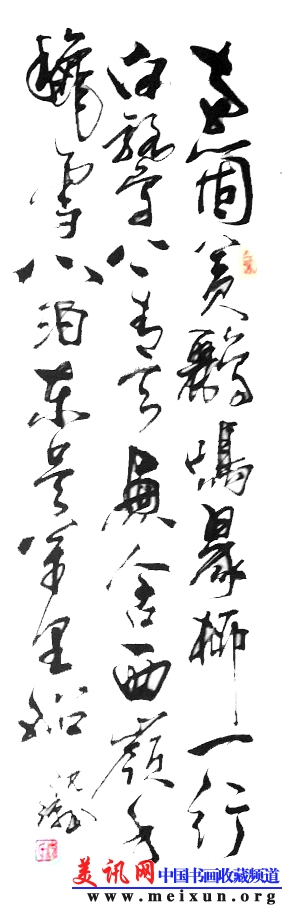 兩個黃鸝鳴翠柳一行
白鷺上青天窗含西嶺千
秋雪門泊東吳萬里船
美讯网 中国书画收藏频道
www.meixun.org